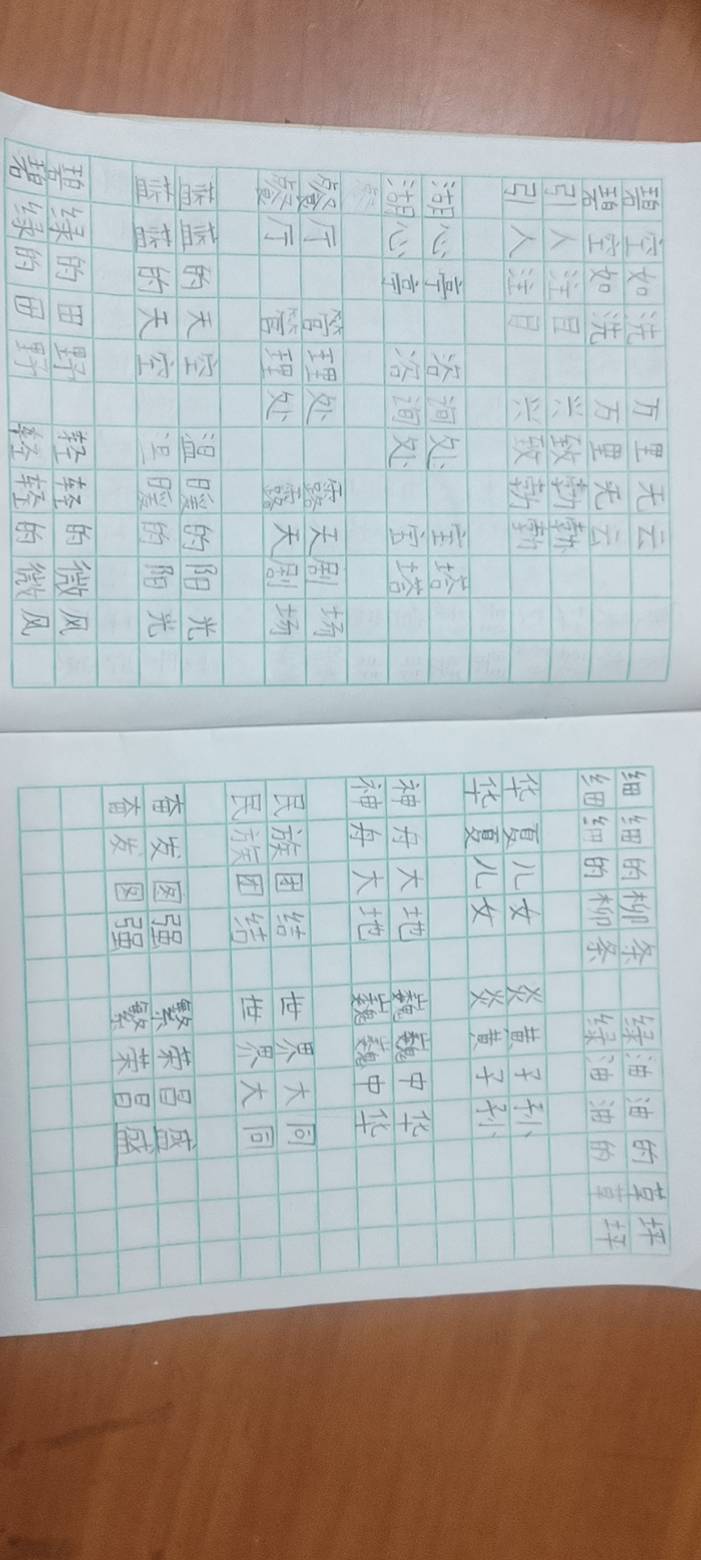 碧空如洗 万里无云
碧空如洗 万里无云
引人注目 兴致勃勃
引人注目 兴致勃勃
湖心亭 咨询处 宝塔
湖心亭 咨询处 宝塔
餐厅 管理处 露天剧场
餐厅 管理处 露天剧场
蓝蓝的天空 温暖的阳光
蓝蓝的天空 温暖的阳光
碧绿的田野 轻轻的微风
碧绿的田野 轻轻的微风
细细的柳条 绿油油的草坪
细细的柳条 绿油油的草坪
华夏儿女 炎黄子孙
华夏儿女 炎黄子孙
神舟大地 巍巍中华
神舟大地 巍巍中华
民族团结 世界大同
民族团结 世界大同
奋发图强 繁荣昌盛
奋发图强 繁荣昌盛